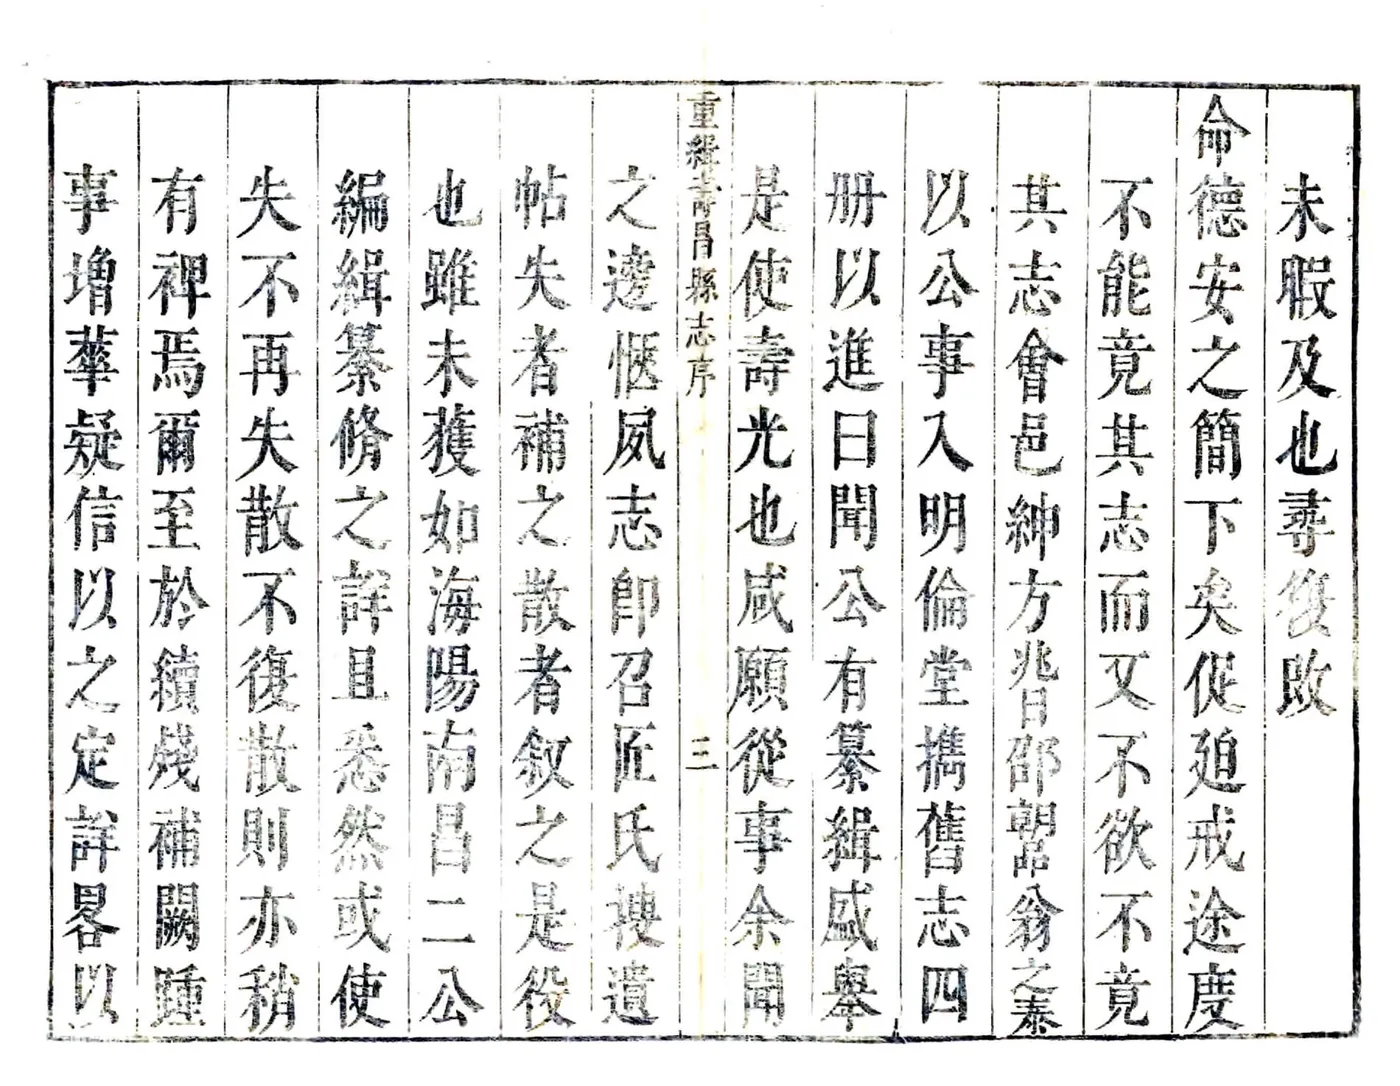 未暇及也尋復敗
命德安之簡下矣促廹戒途度
不能竟其志而又不欲不竟
其志會邑紳方兆日邵朝品翁之泰
以公事入明倫堂攜舊志四
册以進曰聞公有纂緝盛舉
是使壽光也咸願從事余聞
重緝壽昌縣志序 三
之遽愜夙志卽召匠氏搜遺
帖失者補之散者敘之是役
也雖未獲如海陽南昌二公
編緝纂脩之詳且悉然或使
失不再失散不復散則亦稍
有裨焉爾至於續殘補闕踵
事增華疑信以之定詳畧以